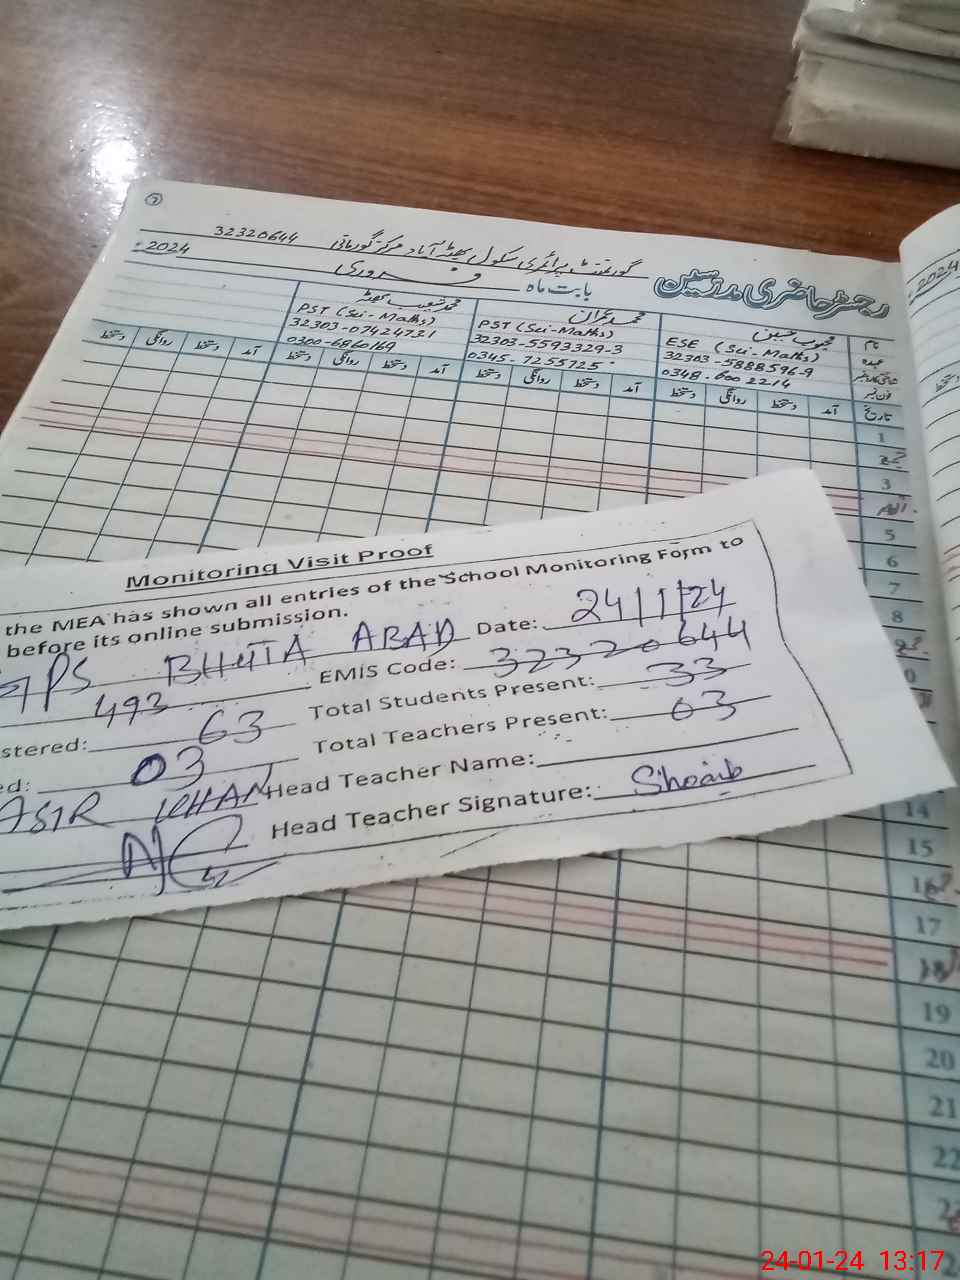 7
گورنمنٹ پرائمری سکول بھٹہ آباد مرکز گورمانی 32320644
رجسٹر حاضری مدرسین
بابت ماہ فروری 2024
2024
نام محبوب حسین محمد عمران محمد شعیب بھٹہ
عہدہ ESE (Sci-Maths) PST (Sci-Maths) PST (Sci-Maths)
32303-5888596-9 32303-5593329-3 32303-07424731
فون نمبر 0348-6002214 0345-7255725 0300-6860169
تاریخ آمد دستخط روانگی دستخط آمد دستخط روانگی دستخط آمد دستخط روانگی دستخط
1
3
5
6
7
8
Monitoring Visit Proof
the MEA has shown all entries of the School Monitoring Form to
before its online submission.
GPS BHUTA ABAD Date: 24/1/24
493 EMIS Code: 32320644
stered: 63 Total Students Present: 33
ed: 03 Total Teachers Present: 03
ASIR KHAN Head Teacher Name:
Head Teacher Signature: Shoaib
14
15
16
17
18
19
20
21
22
24-01-24 13:17